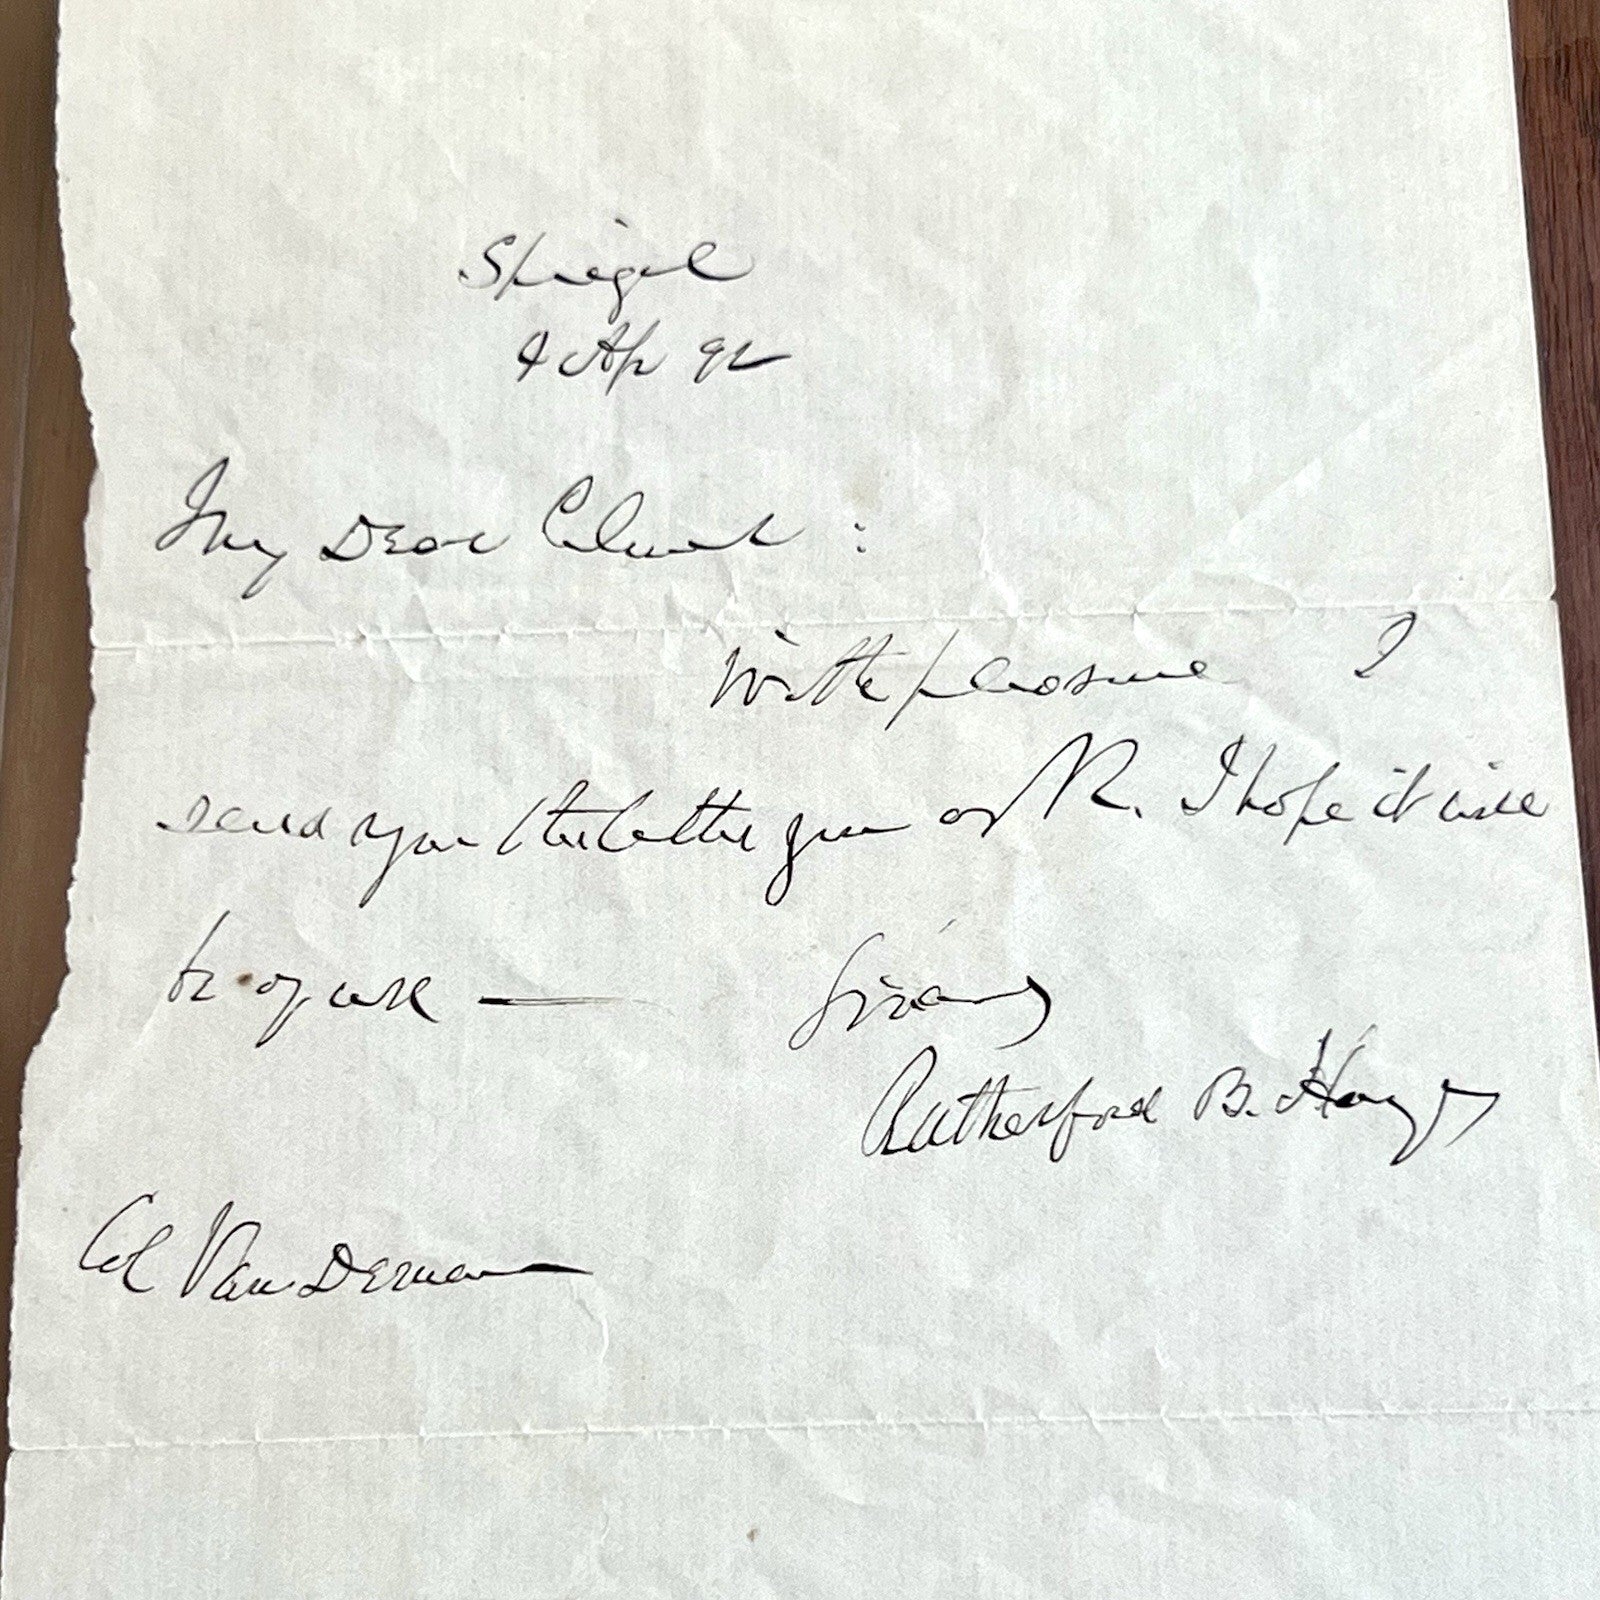 Spiegel
9 Ap 92
My Dear Colonel:
With pleasure I
send you the letter you ask. I hope it will
be of use —
Sincerely
Rutherford B. Hayes
Col Van Derman